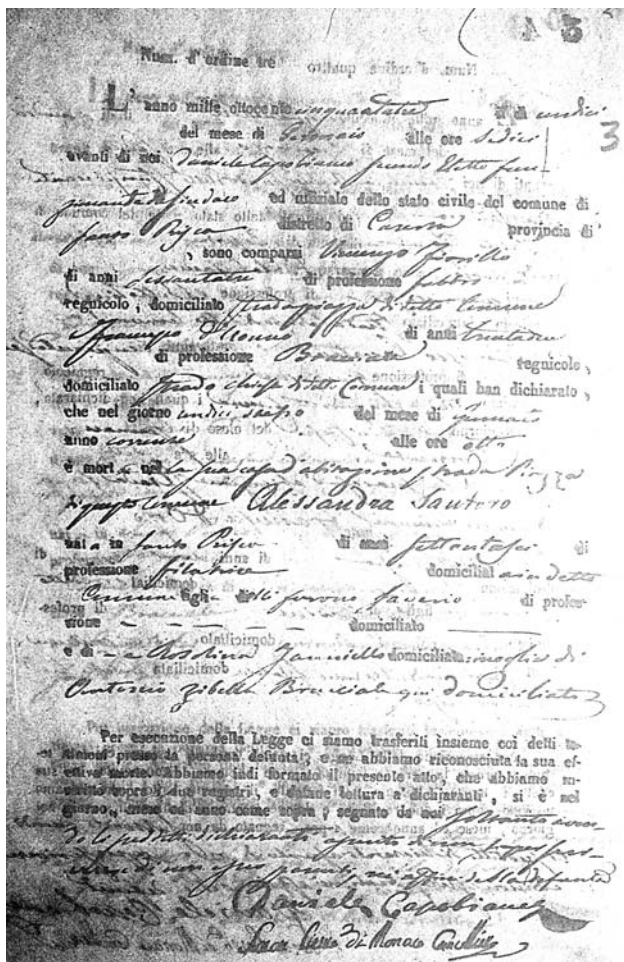 3
Num. d'ordine tre
L'anno mille ottocento cinquantatre il dì undici
del mese di Gennaio alle ore sedici
3
avanti di noi Daniele Capobianco secondo Eletto fun
zionante da Sindaco ed uffiziale dello stato civile del comune di
Santo Prisco distretto di Caserta provincia di
, sono comparsi Vincenzo Fiorillo
di anni sessantatre di professione fabbro
regnicolo, domiciliato strada piazza di detto Comune
di anni trentadue
di professione Bracciale regnicolo,
domiciliato strada chiesa di detto Comune i quali han dichiarato,
che nel giorno undici stesso del mese di Gennaio
anno corrente alle ore otto
è morta nella sua casa d'abitazione strada Piazza
di questo Comune Alessandra Santoro
nata in Santo Prisco di anni settantasei di
professione filatrice domiciliata in detto
Comune figlia delli furono Saverio di profes-
sione domiciliato
e di Rosolina Janniello domiciliata moglie di
Antonio Zibella Bracciale qui domiciliato
Per esecuzione della Legge ci siamo trasferiti insieme coi detti te-
stimoni presso la persona defunta, e ne abbiamo riconosciuta la sua ef-
fettiva morte. Abbiamo indi formato il presente atto, che abbiamo in-
scritto sopra i due registri, e datane lettura a' dichiaranti, si è nel
giorno, mese ed anno come sopra, segnato da noi
dichiaranti
di non esser parenti, nè affini della defunta
Daniele Capobianco
di Monaco Cancelliere